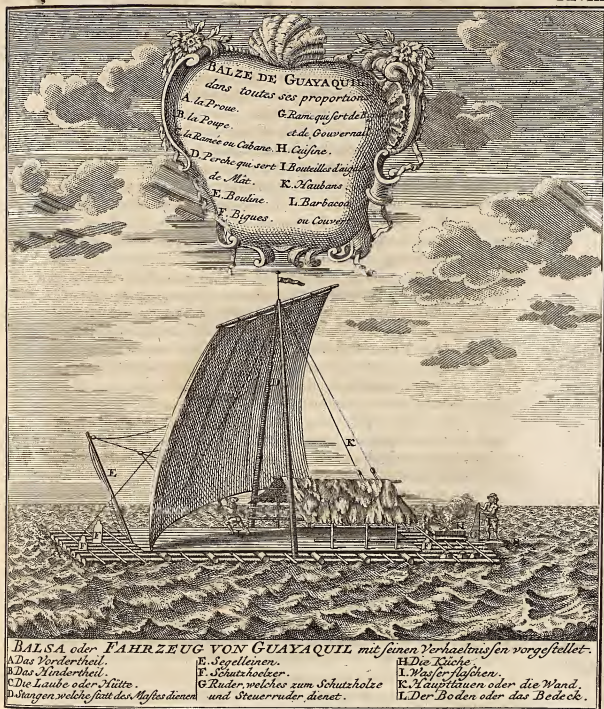 BALZE DE GUAYAQUIL
dans toutes ses proportion
A. la Proue.
B. la Poupe.
la Ramée ou Cabane.
D. Perche qui sert
de Mât.
E. Bouline.
F. Bigues.
G. Rame qui sert de
et de Gouvernai
H. Cuisine.
I. Bouteilles d'aigu
K. Haubans
L. Barbacoa
ou Couver
K
E
BALSA oder FAHRZEUG VON GUAYAQUIL mit seinen Verhaeltnissen vorgestellet.
A Das Vordertheil.
B. Das Hindertheil.
C. Die Laube oder Hütte.
D. Stangen, welche statt des Mastes dienen
E. Segelleinen.
F. Schutzhoelzer.
G Ruder, welches zum Schutzholze
und Steuerruder dienet.
H. Die Küche.
I. Wasserflaschen.
K. Haupttauen oder die Wand.
L. Der Boden oder das Bedeck.